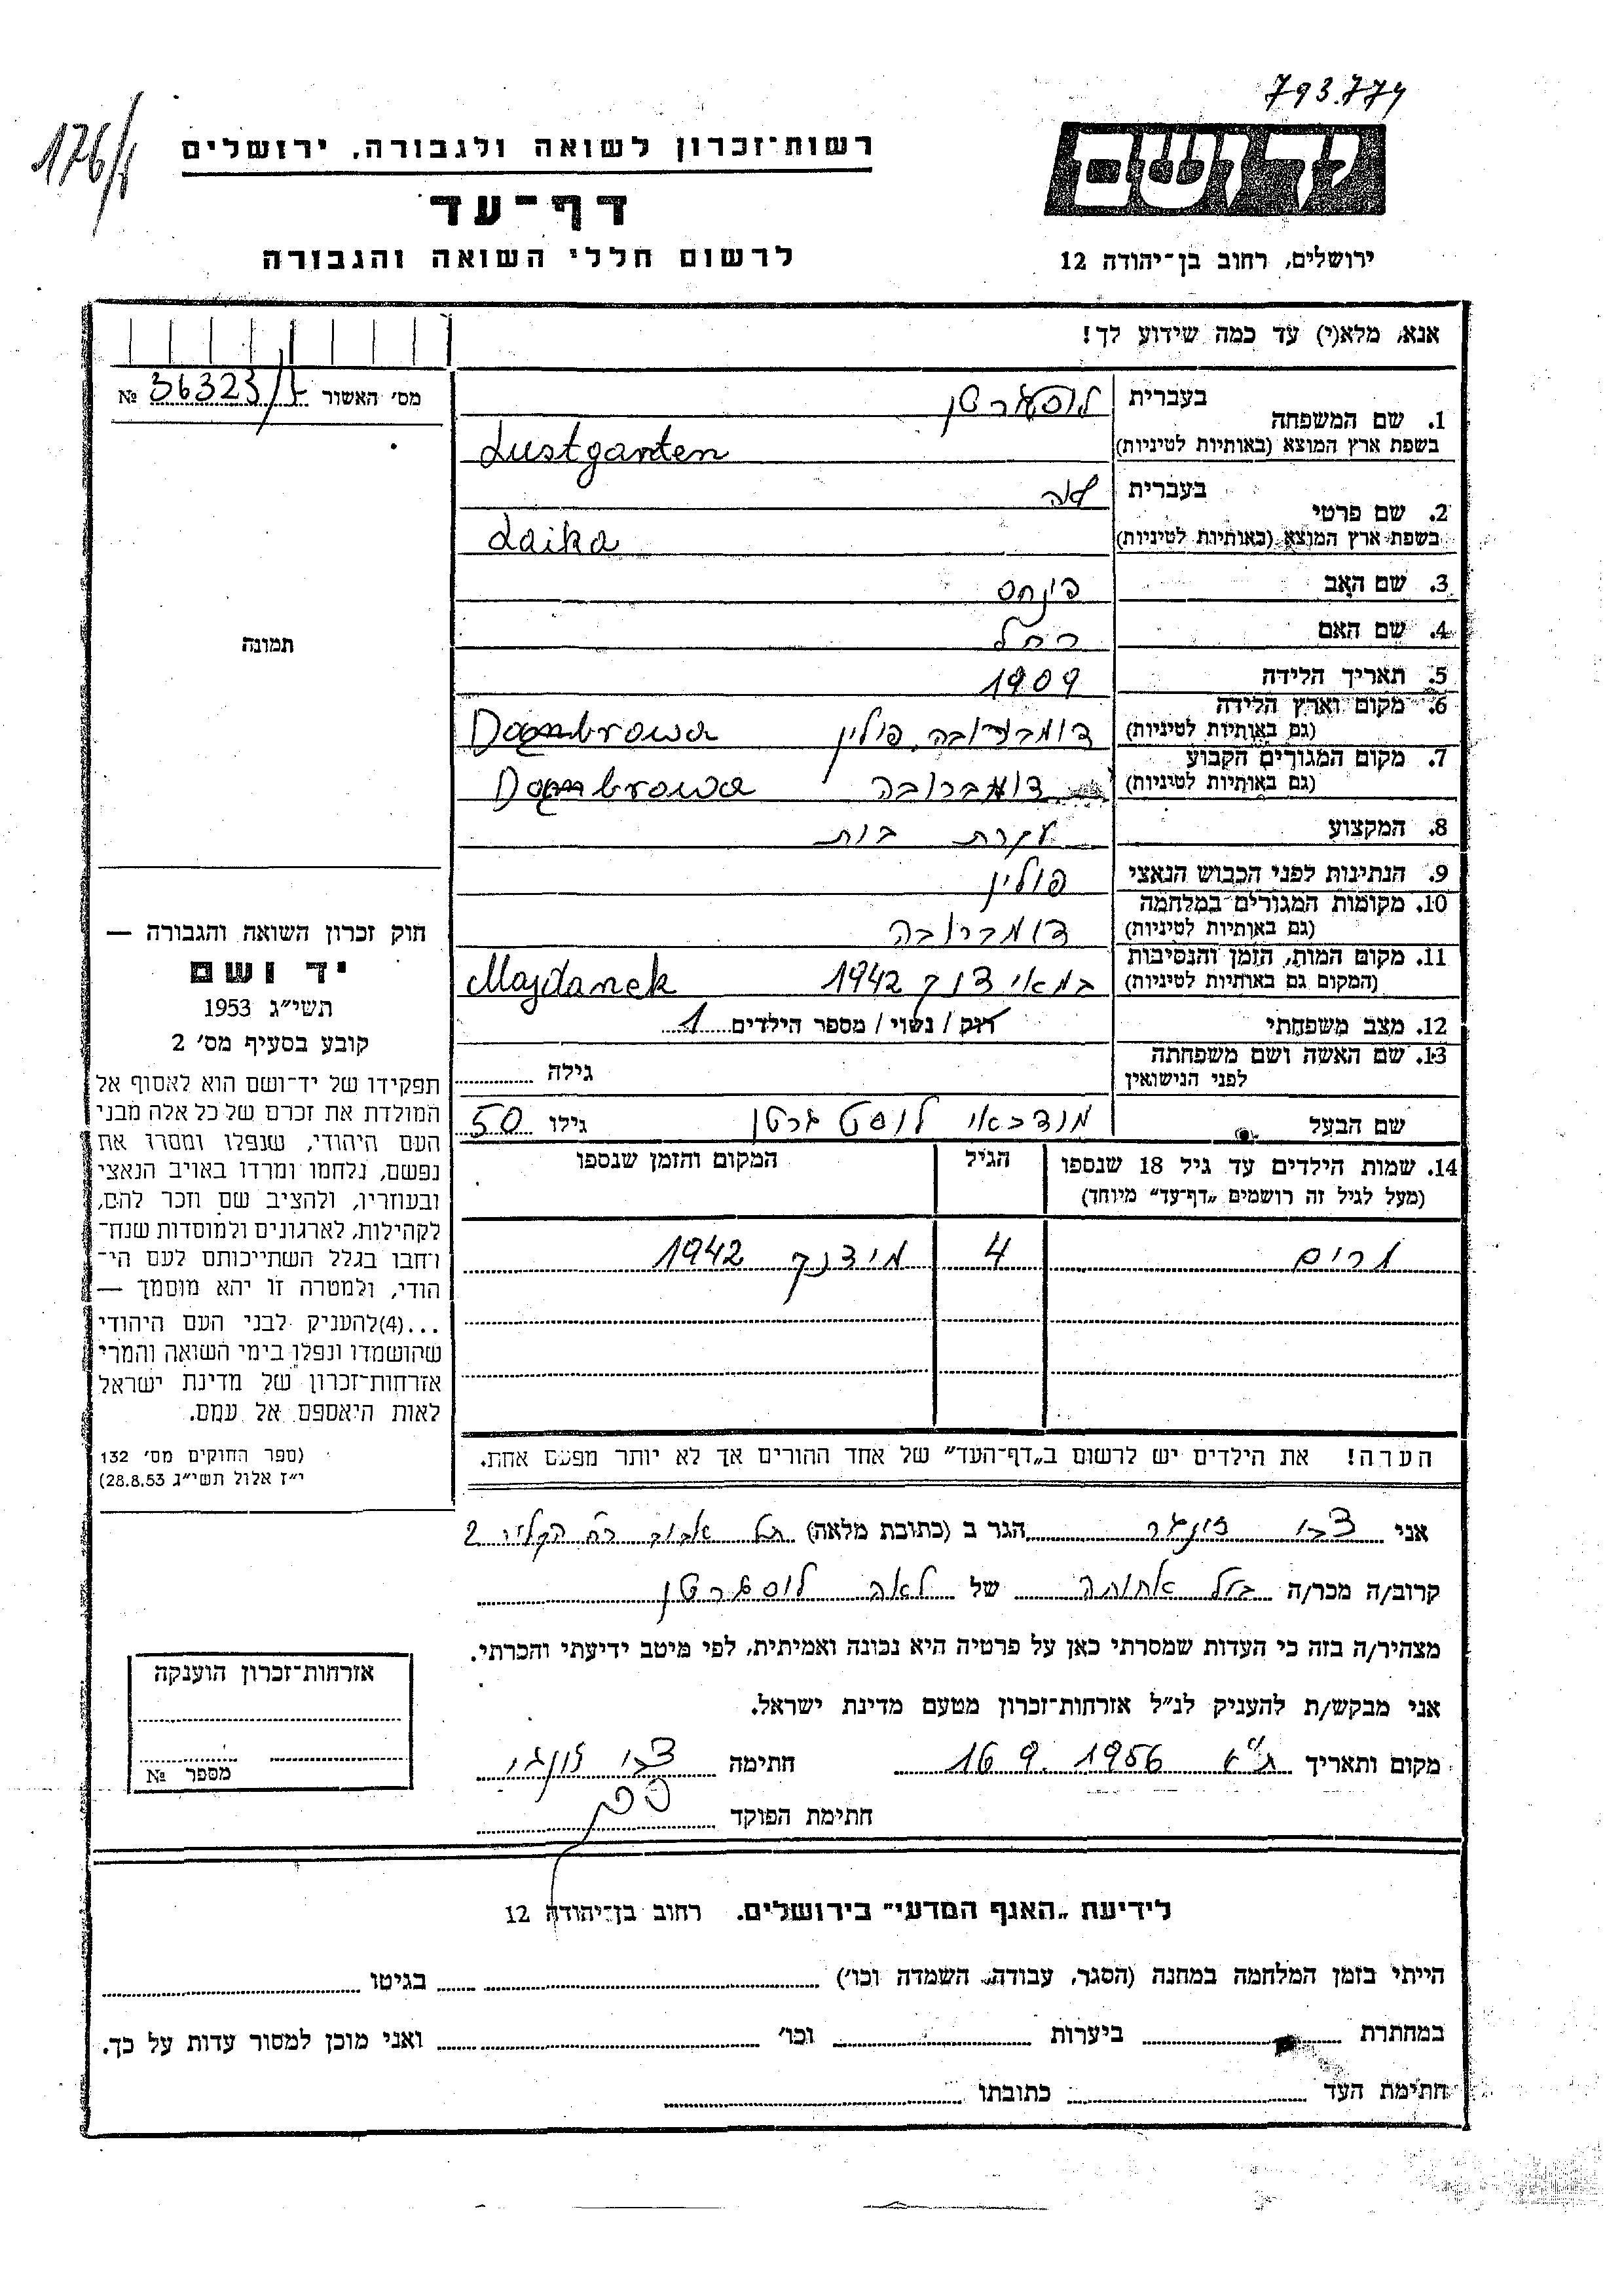 793.774
176/
רשות־זכרון לשואה ולגבורה, ירושלים
דף־עד
לרשום חללי השואה והגבורה
יד ושם
ירושלים, רחוב בן־יהודה 12
אנא, מלא(י) עד כמה שידוע לך!
מס׳ האשור 36323/ №
1. שם המשפחה בעברית לוסגרטן
בשפת ארץ המוצא (באותיות לטיניות) Lustgarten
2. שם פרטי בעברית לאה
בשפת ארץ המוצא (באותיות לטיניות) Laika
3. שם האב פינחס
4. שם האם רחל
5. תאריך הלידה 1909
6. מקום וארץ הלידה דומברובה, פולין Dombrowa
(גם באותיות לטיניות)
7. מקום המגורים הקבוע דומברובה Dombrowa
(גם באותיות לטיניות)
8. המקצוע עקרת בית
9. הנתינות לפני הכבוש הנאצי פולין
10. מקומות המגורים במלחמה דומברובה
(גם באותיות לטיניות)
11. מקום המות, הזמן והנסיבות 1942 Majdanek
(המקום גם באותיות לטיניות)
12. מצב משפחתי רוק / נשוי / מספר הילדים 1
13. שם האשה ושם משפחתה גילה
לפני הנישואין
שם הבעל לוסט גרטן גילו 50
14. שמות הילדים עד גיל 18 שנספו הגיל המקום והזמן שנספו
(מעל לגיל זה רושמים „דף־עד״ מיוחד)
מרים 4 מידנק 1942
הערה! את הילדים יש לרשום ב„דף־העד״ של אחד ההורים אך לא יותר מפעם אחת.
תמונה
חוק זכרון השואה והגבורה —
יד ושם
תשי״ג 1953
קובע בסעיף מס׳ 2
תפקידו של יד־ושם הוא לאסוף אל
המולדת את זכרם של כל אלה מבני
העם היהודי, שנפלו ומסרו את
נפשם, נלחמו ומרדו באויב הנאצי
ובעוזריו, ולהציב שם וזכר להם,
לקהילות, לארגונים ולמוסדות שנח־
רחבו בגלל השתייכותם לעם הי־
הודי, ולמטרה זו יהא מוסמך —
...(4)להעניק לבני העם היהודי
שהושמדו ונפלו בימי השואה והמרי
אזרחות־זכרון של מדינת ישראל
לאות היאספם אל עמם.
(ספר החוקים מס׳ 132
י״ז אלול תשי״ג 28.8.53)
אני צבי זונגר הגר ב (כתובת מלאה) תל אביב 2
קרוב/ה מכר/ה בעל אחותה של לאה לוסגרטן
מצהיר/ה בזה כי העדות שמסרתי כאן על פרטיה היא נכונה ואמיתית, לפי מיטב ידיעתי והכרתי.
אני מבקש/ת להעניק לנ״ל אזרחות־זכרון מטעם מדינת ישראל.
מקום ותאריך ת״א 16.9.1956 חתימה צבי זונגר
חתימת הפוקד
אזרחות־זכרון הוענקה
מספר №
לידיעת „האגף המדעי״ בירושלים. רחוב בן־יהודה 12
הייתי בזמן המלחמה במחנה (הסגר, עבודה, השמדה וכו׳) בגיטו
במחתרת ביערות וכו׳ ואני מוכן למסור עדות על כך.
חתימת העד כתובתו